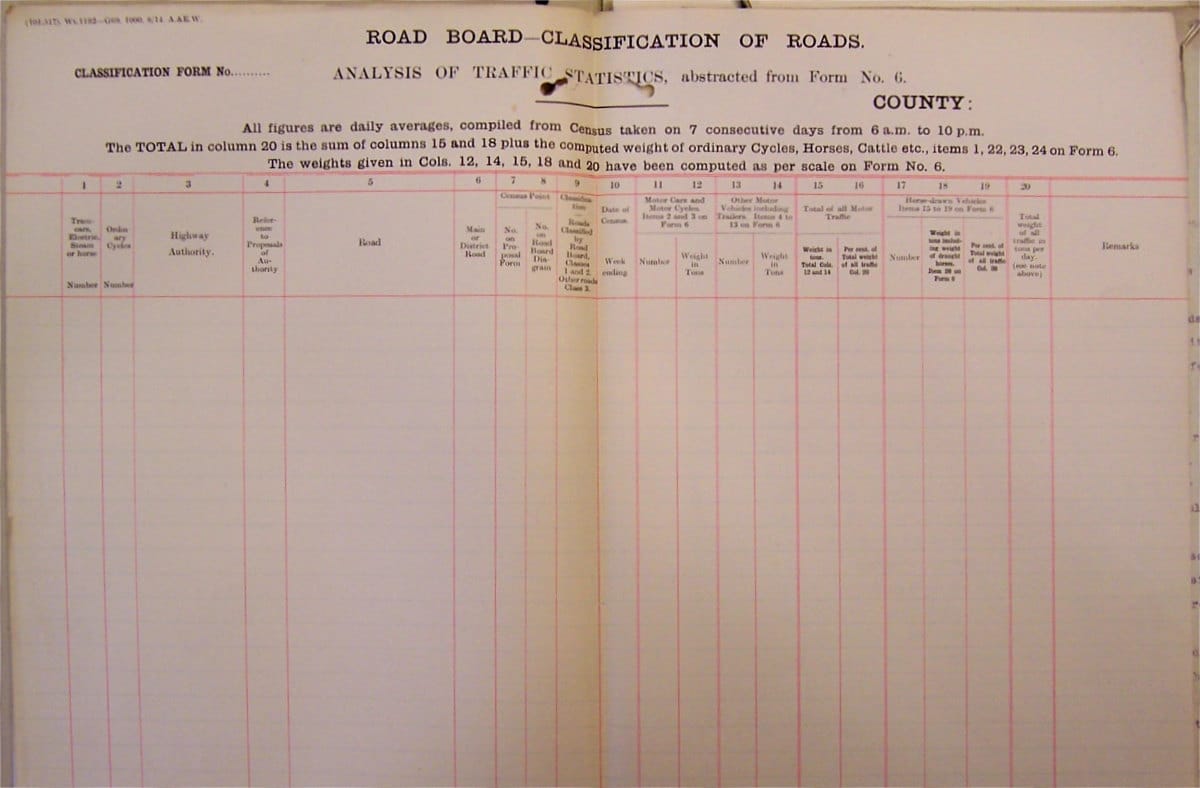 (101,517). Wt.1182—G69. 1000. 6/14. A.&E.W.
ROAD BOARD—CLASSIFICATION OF ROADS.
CLASSIFICATION FORM No..........
ANALYSIS OF TRAFFIC STATISTICS, abstracted from Form No. 6.
COUNTY:
All figures are daily averages, compiled from Census taken on 7 consecutive days from 6 a.m. to 10 p.m.
The TOTAL in column 20 is the sum of columns 15 and 18 plus the computed weight of ordinary Cycles, Horses, Cattle etc., items 1, 22, 23, 24 on Form 6.
The weights given in Cols. 12, 14, 15, 18 and 20 have been computed as per scale on Form No. 6.
1 2 3 4 5 6 7 8 9 10 11 12 13 14 15 16 17 18 19 20
Tram-
cars,
Electric,
Steam
or horse
Number
Ordin
ary
Cycles
Number
Highway
Authority.
Refer-
ence
to
Proposals
of
Au-
thority
Road
Main
or
District
Road
Census Point
No.
on
Pro-
posal
Form
No.
on
Road
Board
Dia-
gram
Classifica-
tion
Roads
Classified
by
Road
Board,
Classes
1 and 2.
Other roads
Class 3.
Date of
Census.
Week
ending
Motor Cars and
Motor Cycles.
Items 2 and 3 on
Form 6
Number
Weight
in
Tons
Other Motor
Vehicles including
Trailers. Items 4 to
13 on Form 6
Number
Weight
in
Tons
Total of all Motor
Traffic
Weight in
tons.
Total Cols.
12 and 14
Per cent. of
Total weight
of all traffic
Col. 20
Horse-drawn Vehicles
Items 15 to 19 on Form 6
Number
Weight in
tons includ-
ing weight
of draught
horses.
Item 20 on
Form 6
Per cent. of
Total weight
of all traffic
Col. 20
Total
weight
of all
traffic in
tons per
day.
(see note
above)
Remarks